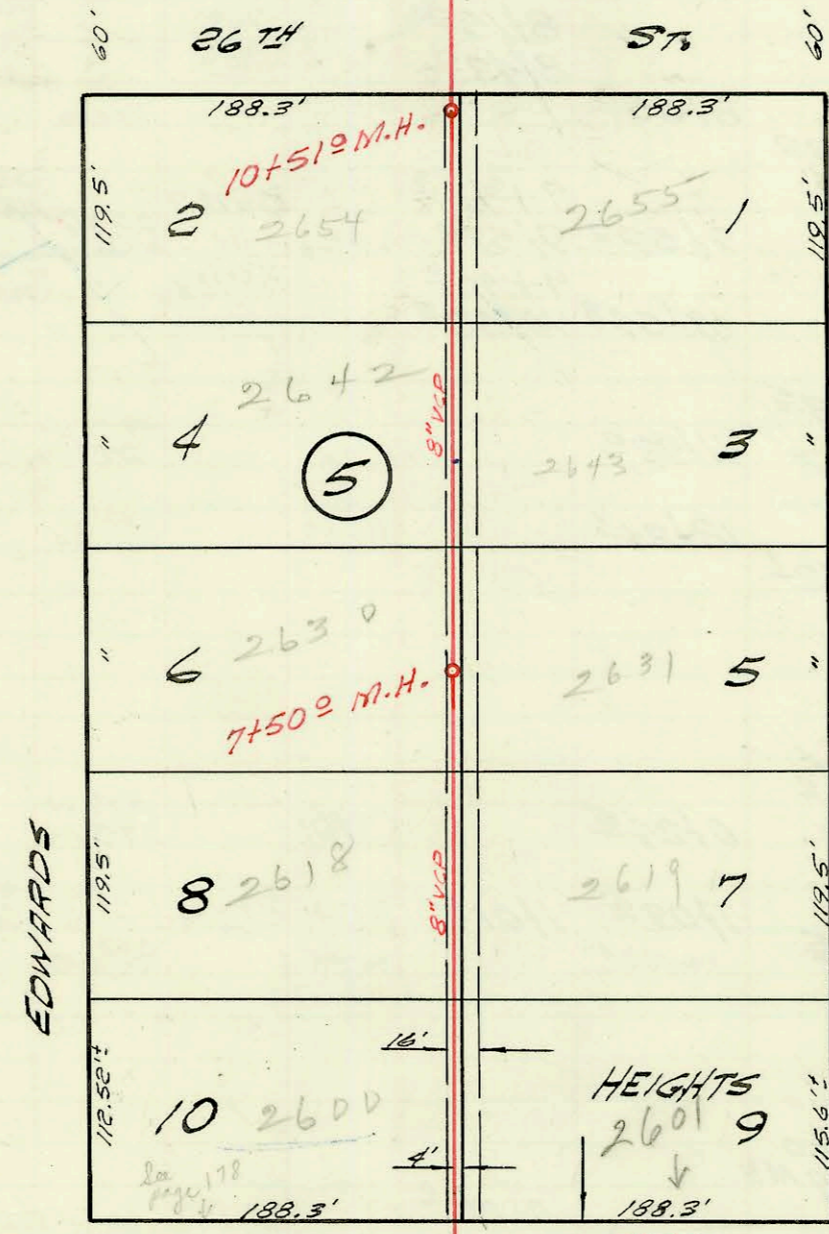 60' 26TH ST. 60'
188.3' 188.3'
10+51º M.H.
119.5' 2 2654 2655 1 119.5'
" 4 2642 8"VCP 2643 3 "
5
" 6 2630 2631 5 "
7+50º M.H.
EDWARDS
119.5' 8 2618 8"VCP 2619 7 119.5'
16'
112.52'± 10 2600 HEIGHTS 2601 9 115.6'±
4'
See
page 178
188.3' 188.3'